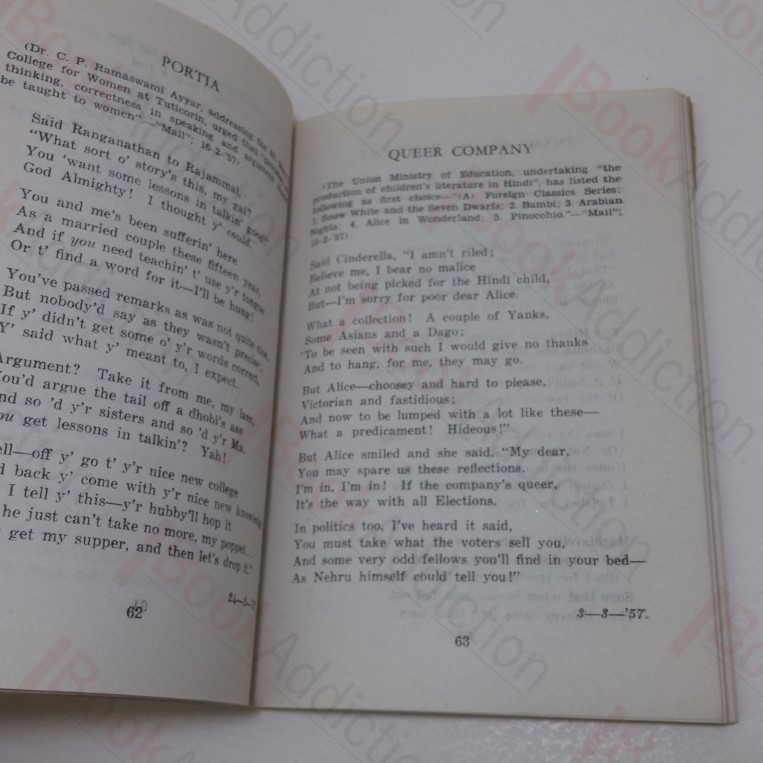 PORTIA
(Dr. C. P. Ramaswami Ayyar, addressing the
College for Women at Tuticorin, urged that
thinking, correctness in speaking and argument
be taught to women"—"Mail"; 16-2-'57)
Said Ranganathan to Rajammal,
"What sort o' story's this, my gal?
You 'want some lessons in talkin' good'
God Almighty! I thought y' could.
You and me's been sufferin' here
As a married couple these fifteen year,
And if you need teachin' t' use y'r tongue
Or t' find a word for it—I'll be hung!
You've passed remarks as was not quite nice,
But nobody'd say as they wasn't precise;
If y' didn't get some o' y'r words correct,
Y' said what y' meant to, I expect.
Argument? Take it from me, my lass,
You'd argue the tail off a dhobi's ass
And so 'd y'r sisters and so 'd y'r Ma.
You get lessons in talkin'? Yah!
ell—off y' go t' y'r nice new college
d back y' come with y'r nice new knowledge
I tell y' this—y'r hubby'll hop it
he just can't take no more, my poppet.
get my supper, and then let's drop it."
62
QUEER COMPANY
(The Union Ministry of Education, undertaking "the
production of children's literature in Hindi", has listed the
following as first choice—"(A) Foreign Classics Series:
1. Snow White and the Seven Dwarfs; 2. Bambi; 3. Arabian
Nights; 4. Alice in Wonderland; 5. Pinocchio."—"Mail";
-'57).
Said Cinderella, "I amn't riled;
Believe me, I bear no malice
At not being picked for the Hindi child,
But—I'm sorry for poor dear Alice.
What a collection! A couple of Yanks,
Some Asians and a Dago;
To be seen with such I would give no thanks
And to hang, for me, they may go.
But Alice—choosey and hard to please,
Victorian and fastidious;
And now to be lumped with a lot like these—
What a predicament! Hideous!"
But Alice smiled and she said, "My dear,
You may spare us these reflections.
I'm in, I'm in! If the company's queer,
It's the way with all Elections.
In politics too, I've heard it said,
You must take what the voters sell you,
And some very odd fellows you'll find in your bed—
As Nehru himself could tell you!"
3—3—'57.
63
BookAddiction